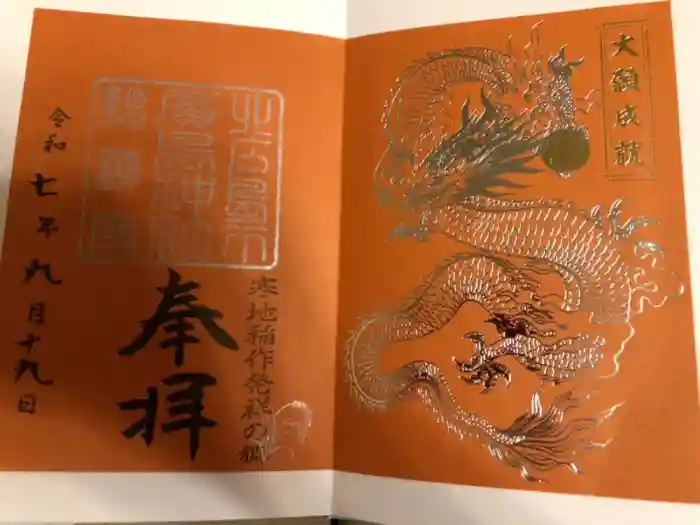 大願成就
廣島神社
寒地稲作発祥の
奉拝
令和七年九月十九日